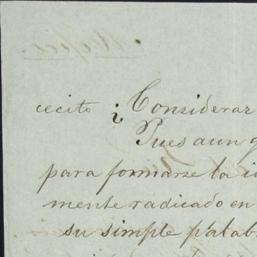 cecito ¿Considerar
Pues aun q
para formarse la i
mente radicado en
su simple palab